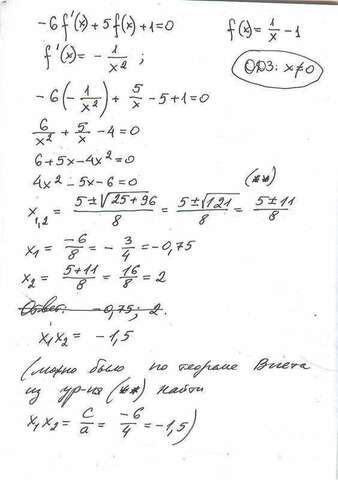 -6f'(x)+5f(x)+1=0
f(x)=1/x -1
f'(x)= - 1/x² ;
ОДЗ: x≠0
-6(-1/x²)+ 5/x -5+1=0
6/x² + 5/x -4=0
6+5x-4x²=0
4x²-5x-6=0
(**)
x₁,₂ = (5±√(25+96))/8 = (5±√121)/8 = (5±11)/8
x₁ = -6/8 = - 3/4 = -0,75
x₂ = (5+11)/8 = 16/8 = 2
Ответ: -0,75; 2.
x₁x₂ = -1,5
(можно было по теореме Виета
из ур-ия (**) найти
x₁x₂ = c/a = -6/4 = -1,5)